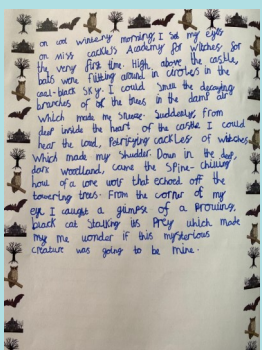 on cool wintery morning, I set my eyes
on miss cackles Academy for witches for
the very first time. High above the castle,
bats were flitting around in circles in the
coal-black sky. I could smell the decaying
branches of of the trees in the damp air
which made me sneeze. Suddenly, from
deep inside the heart of the castle I could
hear the loud, Petrifying cackles of witches
which made my shudder. Down in the deep,
dark woodland, came the spine-chilling
howl of a lone wolf that echoed off the
towering trees. From the corner of my
eye I caught a glimpse of a prowling,
black cat stalking its prey which made
my me wonder if this mysterious
creature was going to be mine.